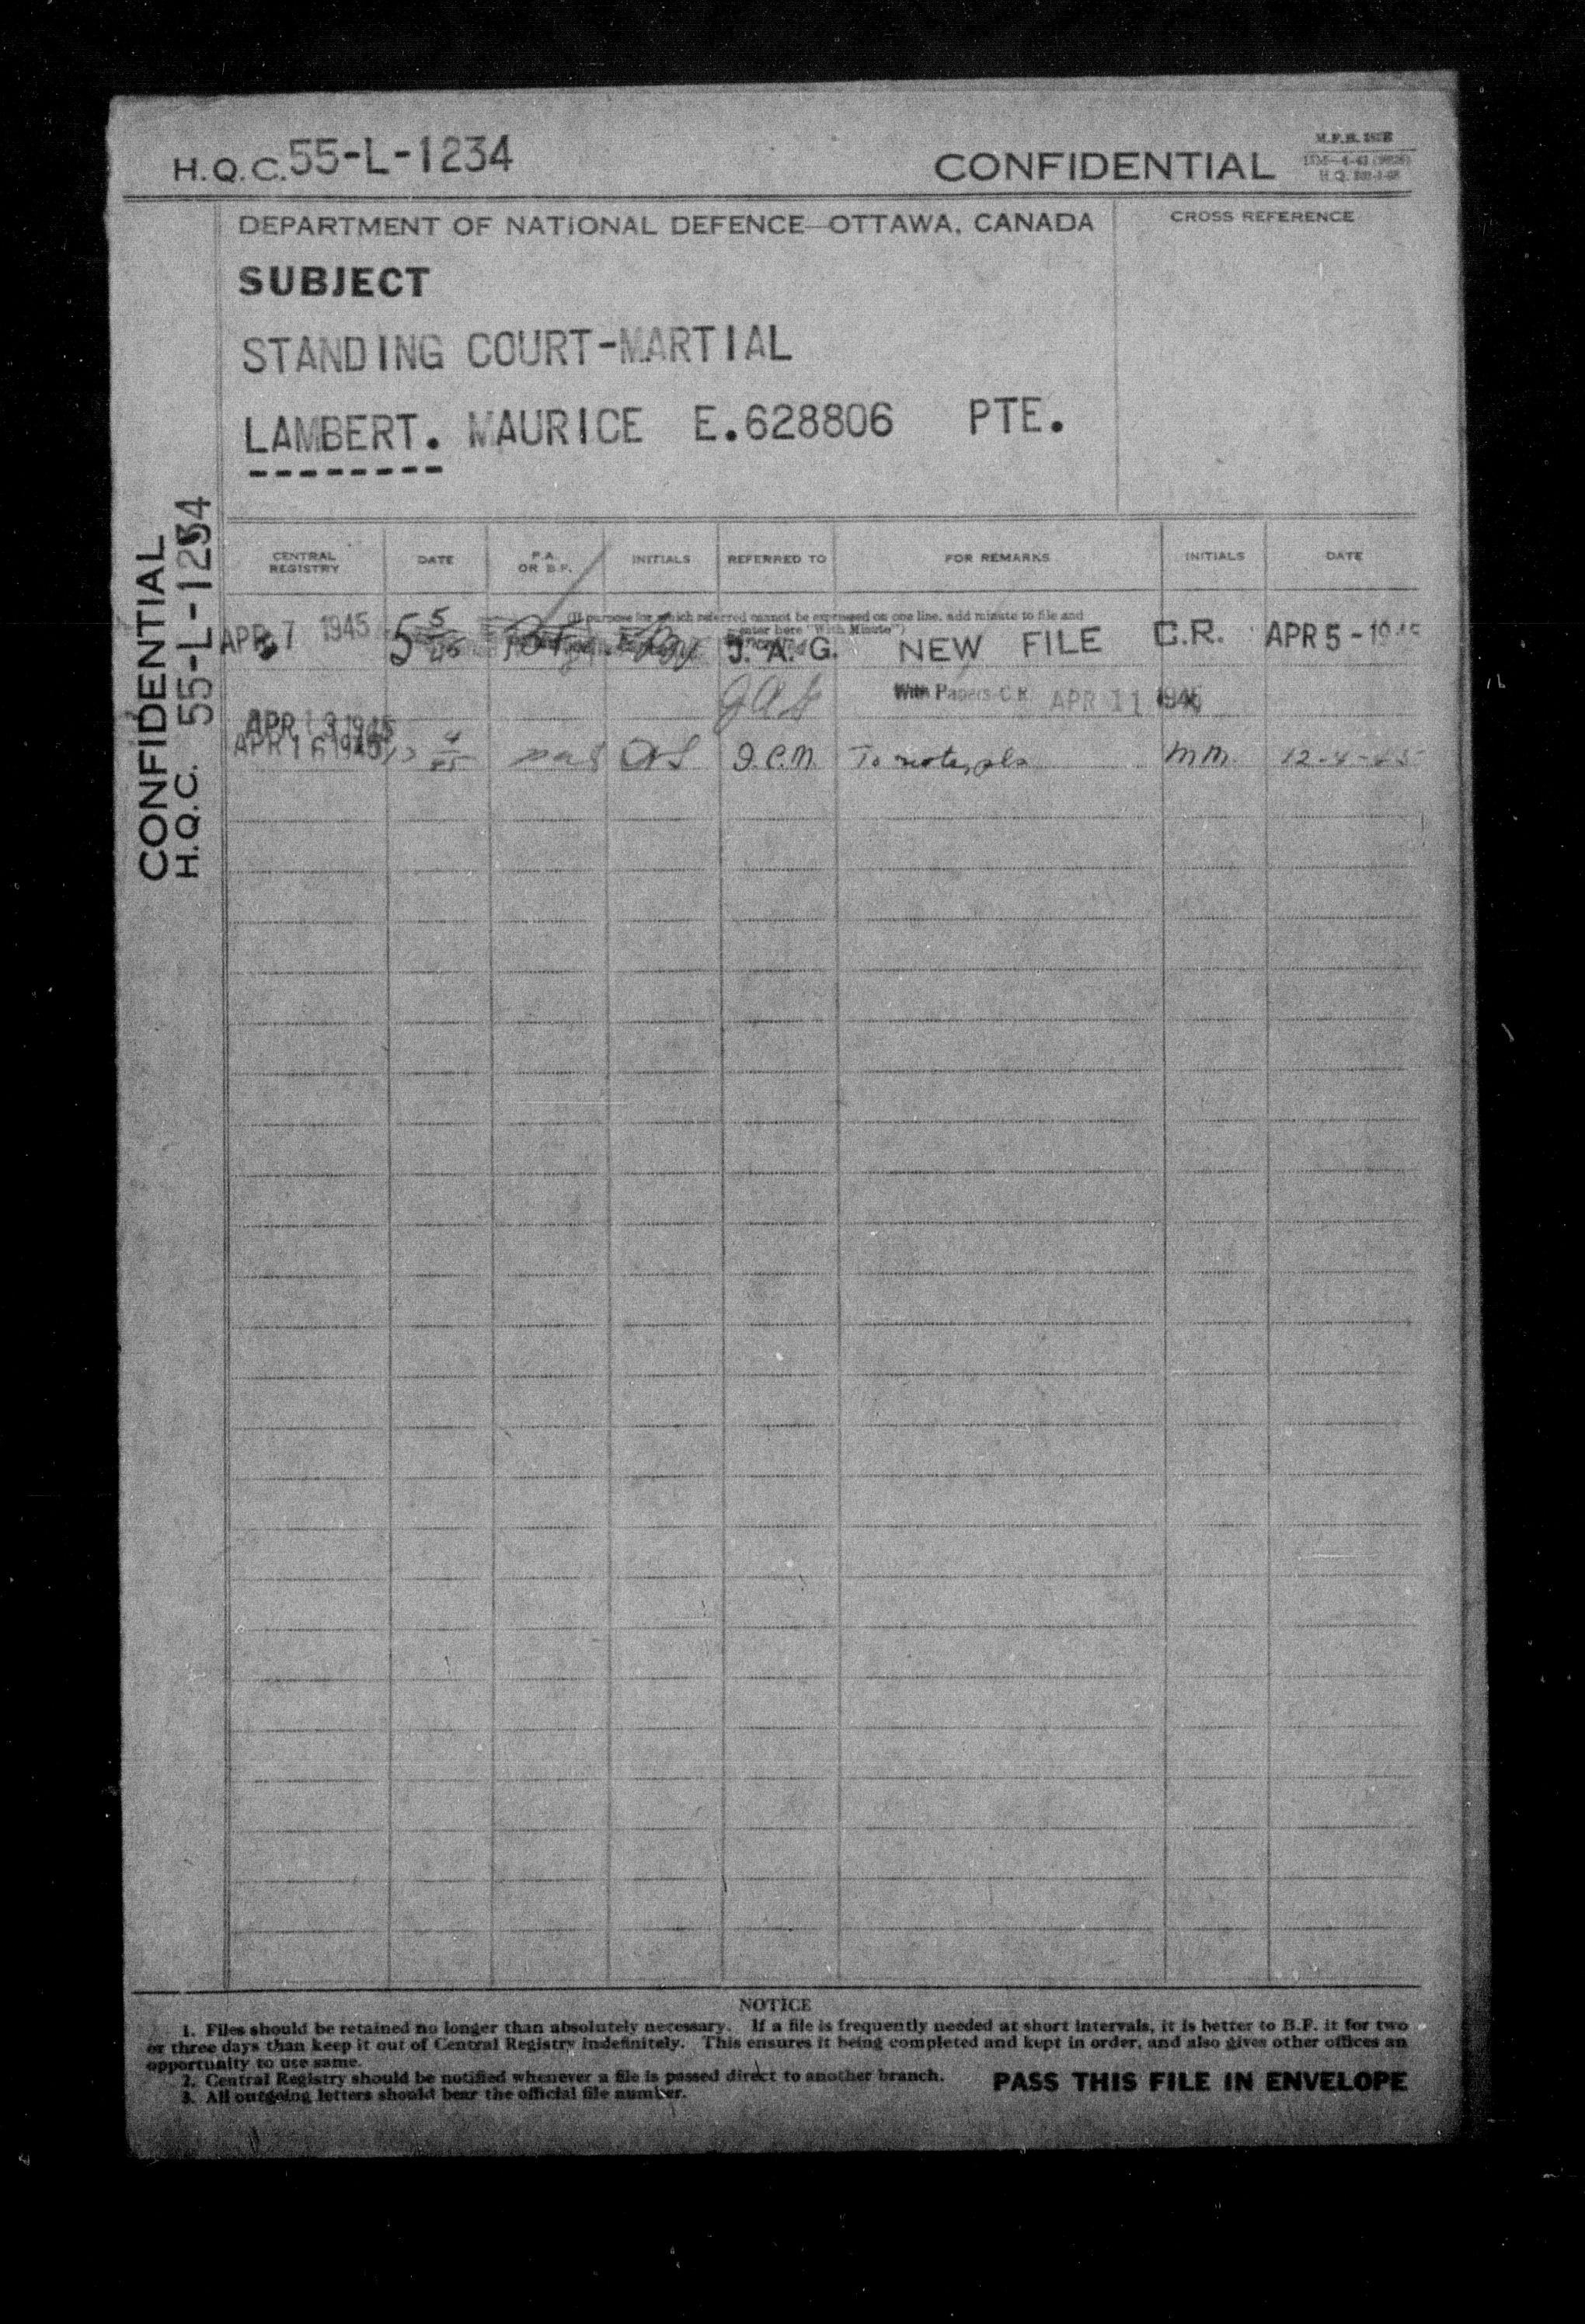 H.Q.C. 55-L-1234
CONFIDENTIAL
DEPARTMENT OF NATIONAL DEFENCE—OTTAWA, CANADA
CROSS REFERENCE
SUBJECT
STANDING COURT-MARTIAL
LAMBERT. MAURICE E.628806 PTE.
CONFIDENTIAL
H.Q.C. 55-L-1234
CENTRAL REGISTRY DATE P.A. OR B.F. INITIALS REFERRED TO FOR REMARKS INITIALS DATE
(If purpose for which referred cannot be expressed on one line, add minute to file and
enter here "With Minute")
APR 7 1945 J. A. G. NEW FILE C.R. APR 5 - 1945
JAG With Papers C.R. APR 11 1945
APR 13 1945
APR 16 1945 To note, pls M.M. 12-4-45
NOTICE
1. Files should be retained no longer than absolutely necessary. If a file is frequently needed at short intervals, it is better to B.F. it for two
or three days than keep it out of Central Registry indefinitely. This ensures it being completed and kept in order, and also gives other offices an
opportunity to use same.
2. Central Registry should be notified whenever a file is passed direct to another branch.
3. All outgoing letters should bear the official file number.
PASS THIS FILE IN ENVELOPE